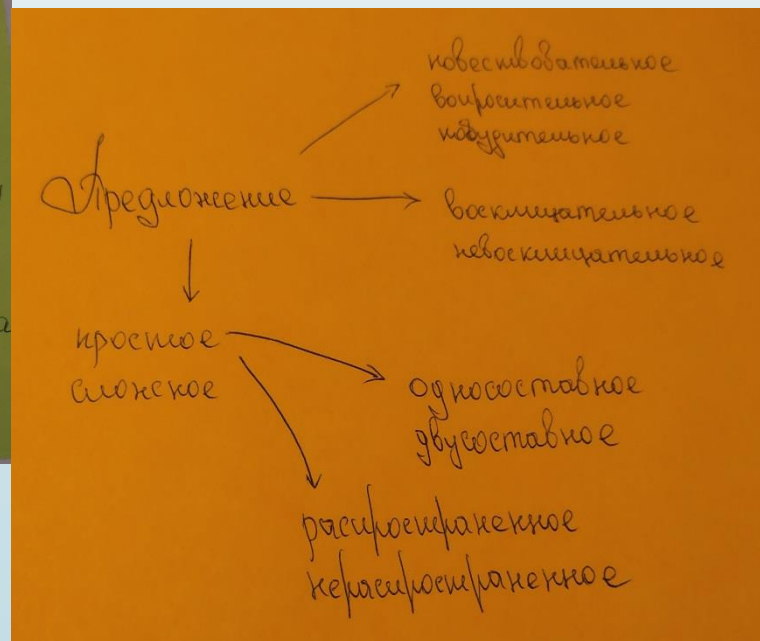 повествовательное
вопросительное
побудительное
Предложение
восклицательное
невосклицательное
простое
сложное
односоставное
двусоставное
распространенное
нераспространенное